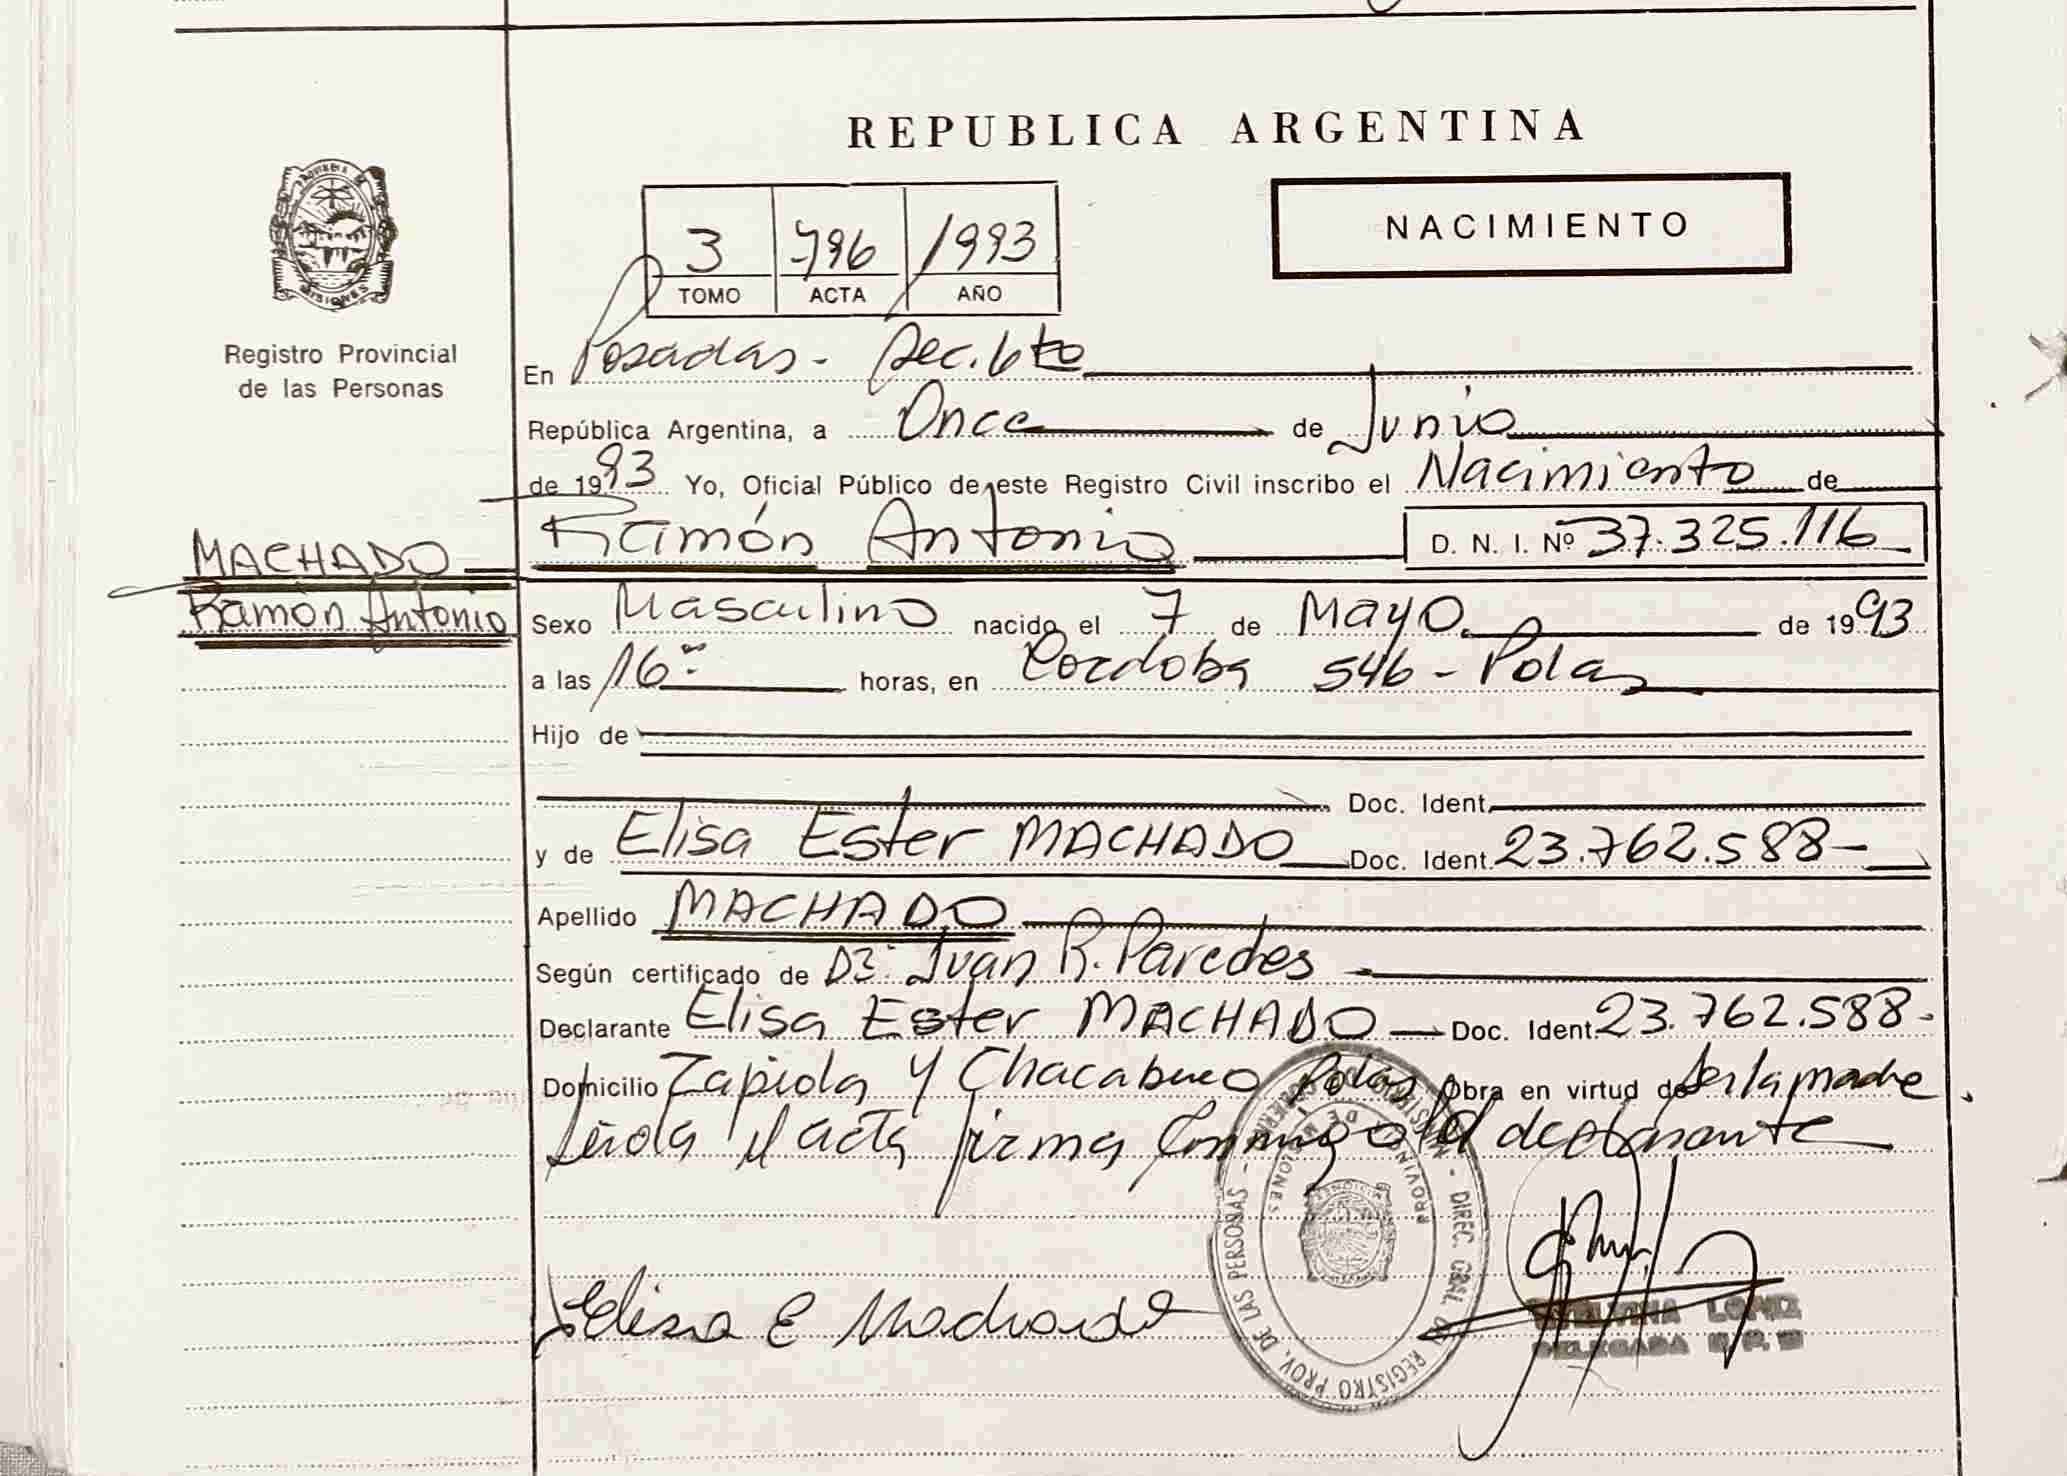 REPUBLICA ARGENTINA
NACIMIENTO
3 796 1993
TOMO ACTA AÑO
MISIONES
Registro Provincial
de las Personas
En Posadas - Sec. 6ta
República Argentina, a Once de Junio
de 1993 Yo, Oficial Público de este Registro Civil inscribo el Nacimiento de
MACHADO
Ramón Antonio
Ramón Antonio D. N. I. Nº 37.325.116
Sexo Masculino nacido el 7 de Mayo de 1993
a las 16 horas, en Cordoba 546 - Pdas
Hijo de
Doc. Ident.
y de Elisa Ester MACHADO Doc. Ident. 23.762.588-
Apellido MACHADO
Según certificado de Dr. Juan R. Paredes
Declarante Elisa Ester MACHADO Doc. Ident. 23.762.588-
Domicilio Zapiola y Chacabuco Pdas Obra en virtud de ser la madre
Leida el acta firma conmigo el declarante
Elisa E Machado
DIREC. GRAL. DE REGISTRO PROV. DE LAS PERSONAS -
PROVINCIA DE MISIONES
DELEGADA